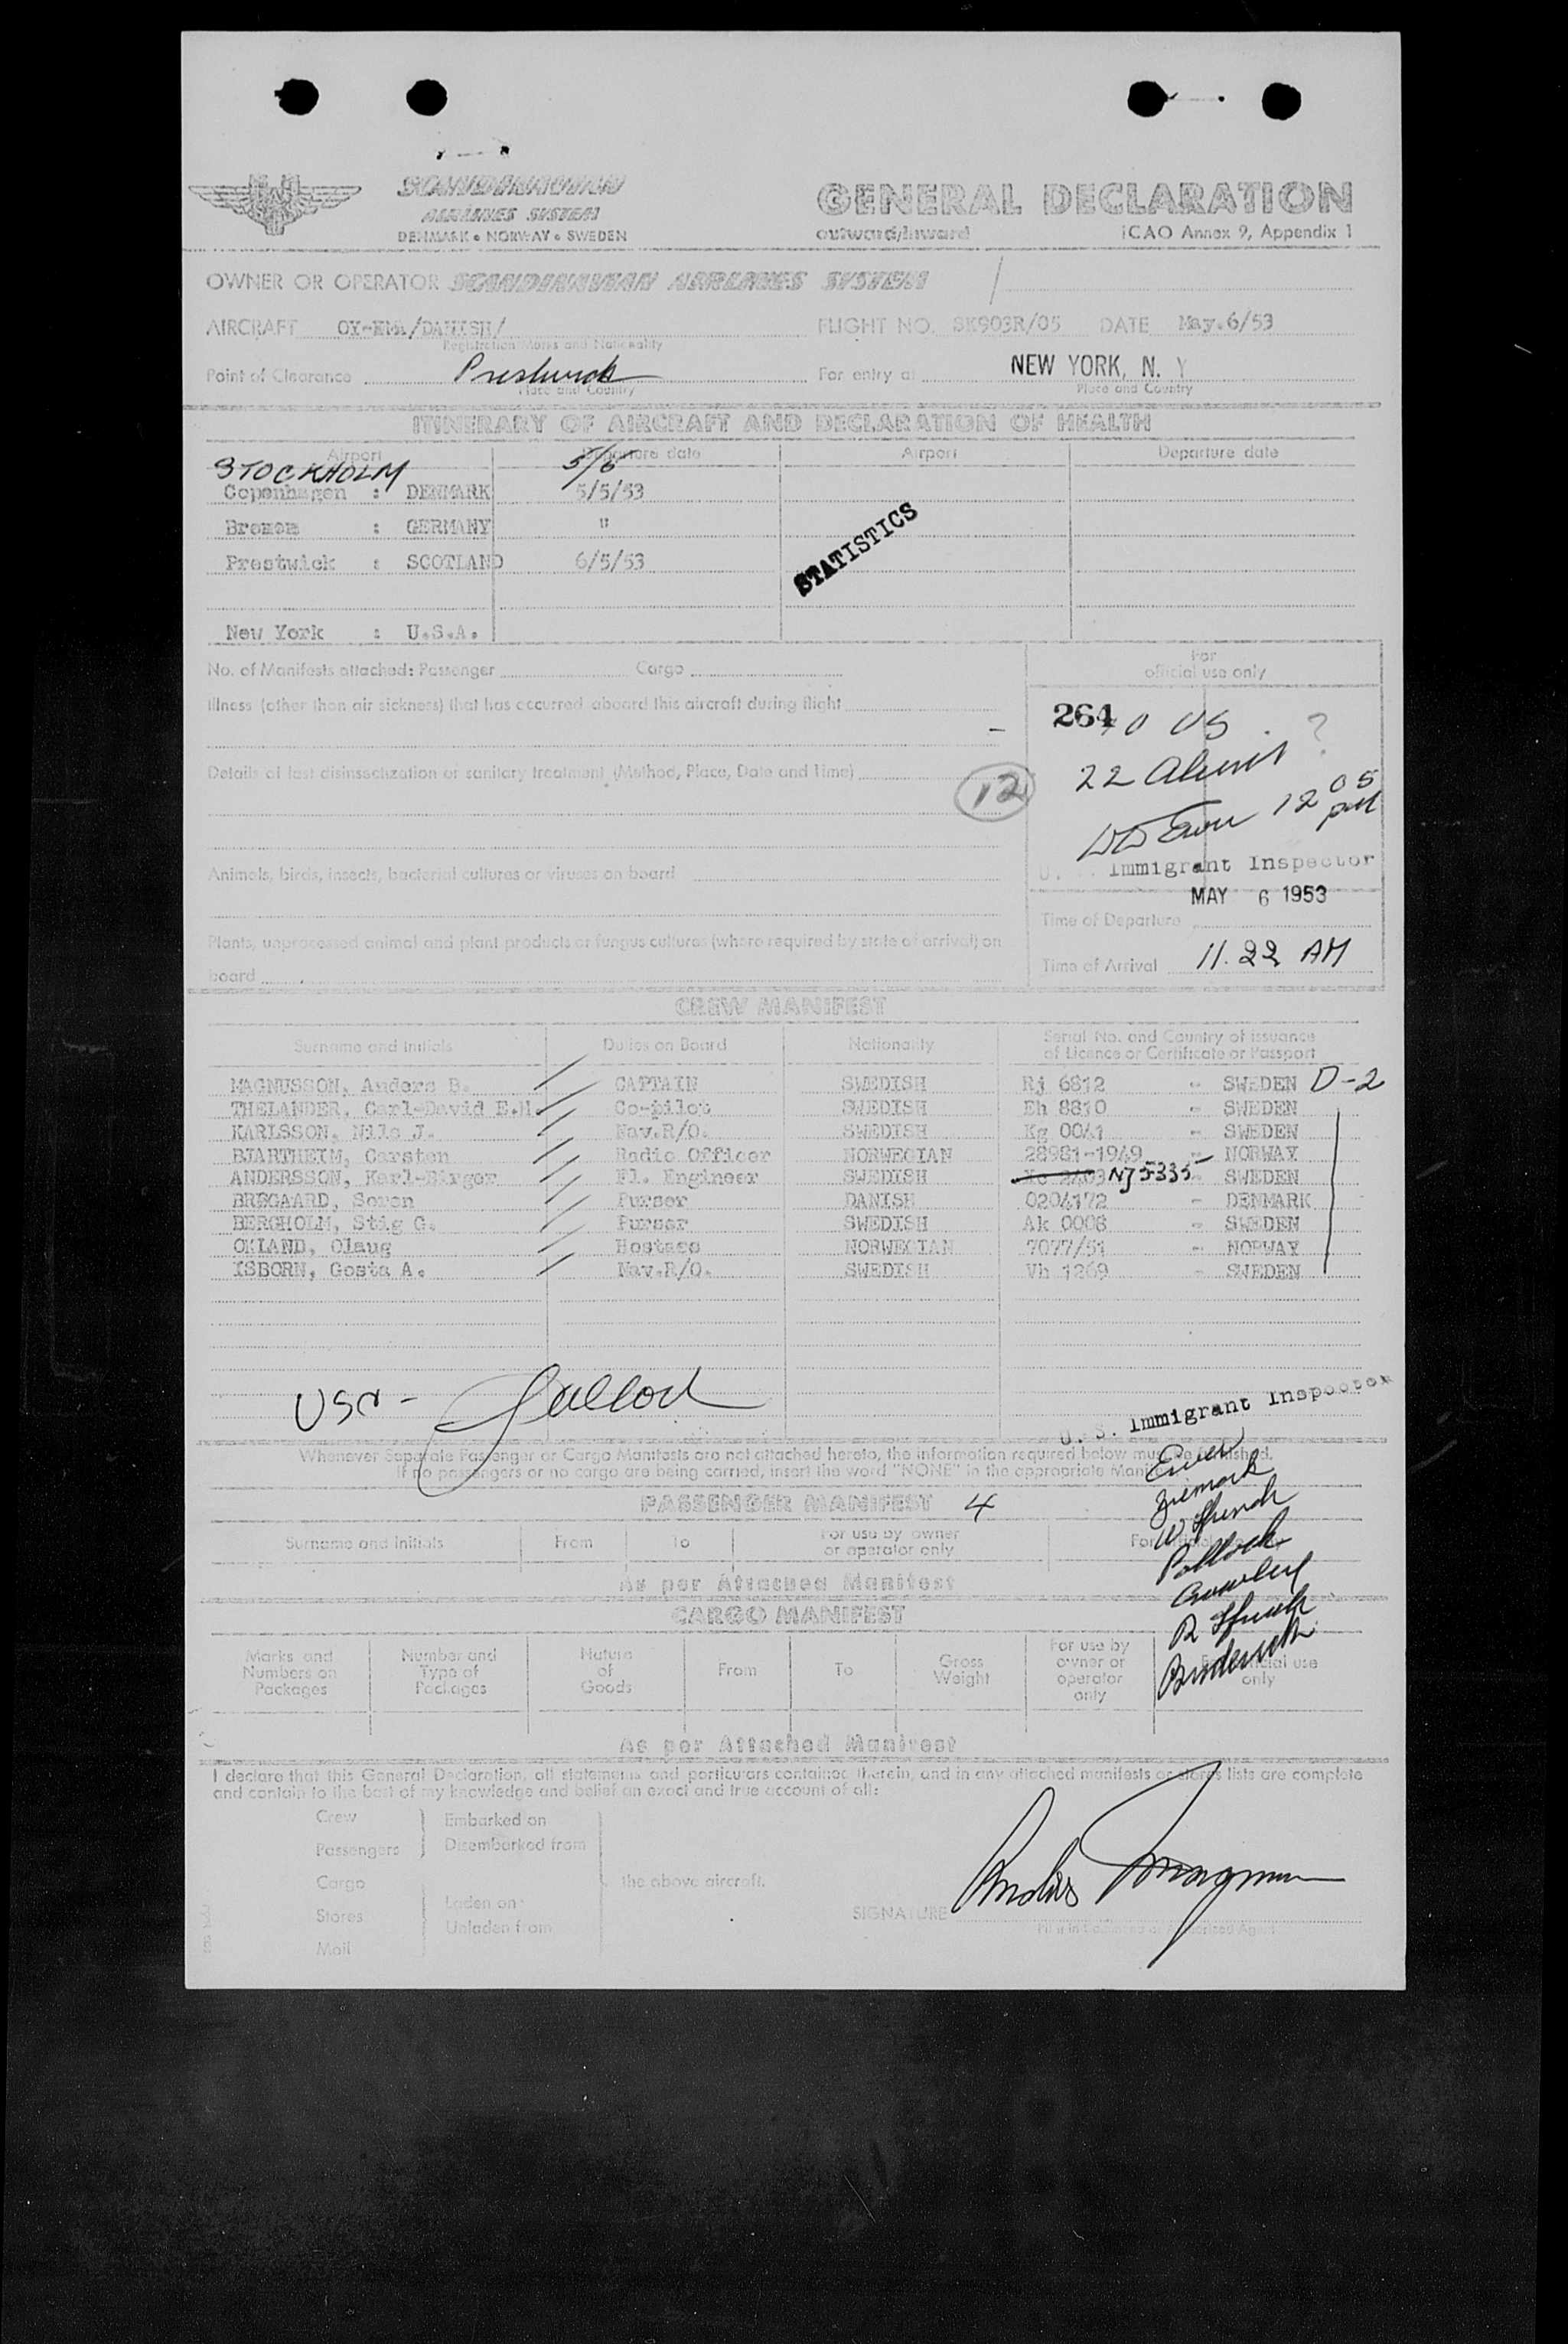 SCANDINAVIAN
AIRLINES SYSTEM
DENMARK • NORWAY • SWEDEN
GENERAL DECLARATION
outward/inward
ICAO Annex 9, Appendix 1
OWNER OR OPERATOR SCANDINAVIAN AIRLINES SYSTEM
AIRCRAFT /DANISH/ FLIGHT NO. SK903R/05 DATE May.6/53
Registration Marks and Nationality
Point of Clearance Prestwick For entry at NEW YORK, N. Y
Place and Country Place and Country
ITINERARY OF AIRCRAFT AND DECLARATION OF HEALTH
Airport Departure date Airport Departure date
STOCKHOLM 5/5
Copenhagen : DENMARK 5/5/53
Bremen : GERMANY "
Prestwick : SCOTLAND 6/5/53
STATISTICS
New York : U.S.A.
No. of Manifests attached: Passenger Cargo
For
official use only
Illness (other than air sickness) that has occurred aboard this aircraft during flight
-
264 10 US . ?
Details of last disinsectization or sanitary treatment (Method, Place, Date and Time)
12
22 Aliens
12 05 pm
Animals, birds, insects, bacterial cultures or viruses on board
U. S. Immigrant Inspector
MAY 6 1953
Time of Departure
Plants, unprocessed animal and plant products or fungus cultures (where required by state of arrival) on
board
Time of Arrival 11.22 AM
CREW MANIFEST
Surname and initials Duties on Board Nationality Serial No. and Country of issuance
of Licence or Certificate or Passport
MAGNUSSON, Anders B. CAPTAIN SWEDISH Rj 6812 - SWEDEN D-2
THELANDER, Carl-David E.H. Co-pilot SWEDISH Eh 8810 - SWEDEN
KARLSSON, Nils J. Nav.R/O. SWEDISH Kg 0041 - SWEDEN
BJARTHEIM, Carsten Radio Officer NORWEGIAN 28981-1949 - NORWAY
ANDERSSON, Karl-Birger Fl. Engineer SWEDISH NJ 5335 - SWEDEN
BREGAARD, Soren Purser DANISH 0204172 - DENMARK
BERGHOLM, Stig G. Purser SWEDISH Ak 0008 - SWEDEN
OKLAND, Olaug Hostess NORWEGIAN 7077/51 - NORWAY
ISBORN, Gosta A. Nav.R/O. SWEDISH Vh 1269 - SWEDEN
U. S. Immigrant Inspector
Whenever Separate Passenger or Cargo Manifests are not attached hereto, the information required below must be furnished.
If no passengers or no cargo are being carried, insert the word "NONE" in the appropriate Manifest
PASSENGER MANIFEST 4
Surname and initials From To For use by owner
or operator only
Pollock
As per Attached Manifest
CARGO MANIFEST
Marks and Numbers on Packages Number and Type of Packages Nature of Goods From To Gross Weight For use by owner or operator only For official use only
As per Attached Manifest
I declare that this General Declaration, all statements and particulars contained therein, and in any attached manifests or stores lists are complete
and contain to the best of my knowledge and belief an exact and true account of all:
Crew Embarked on
Passengers Disembarked from
Cargo the above aircraft.
Stores Laden on
Unladen from
Mail
SIGNATURE